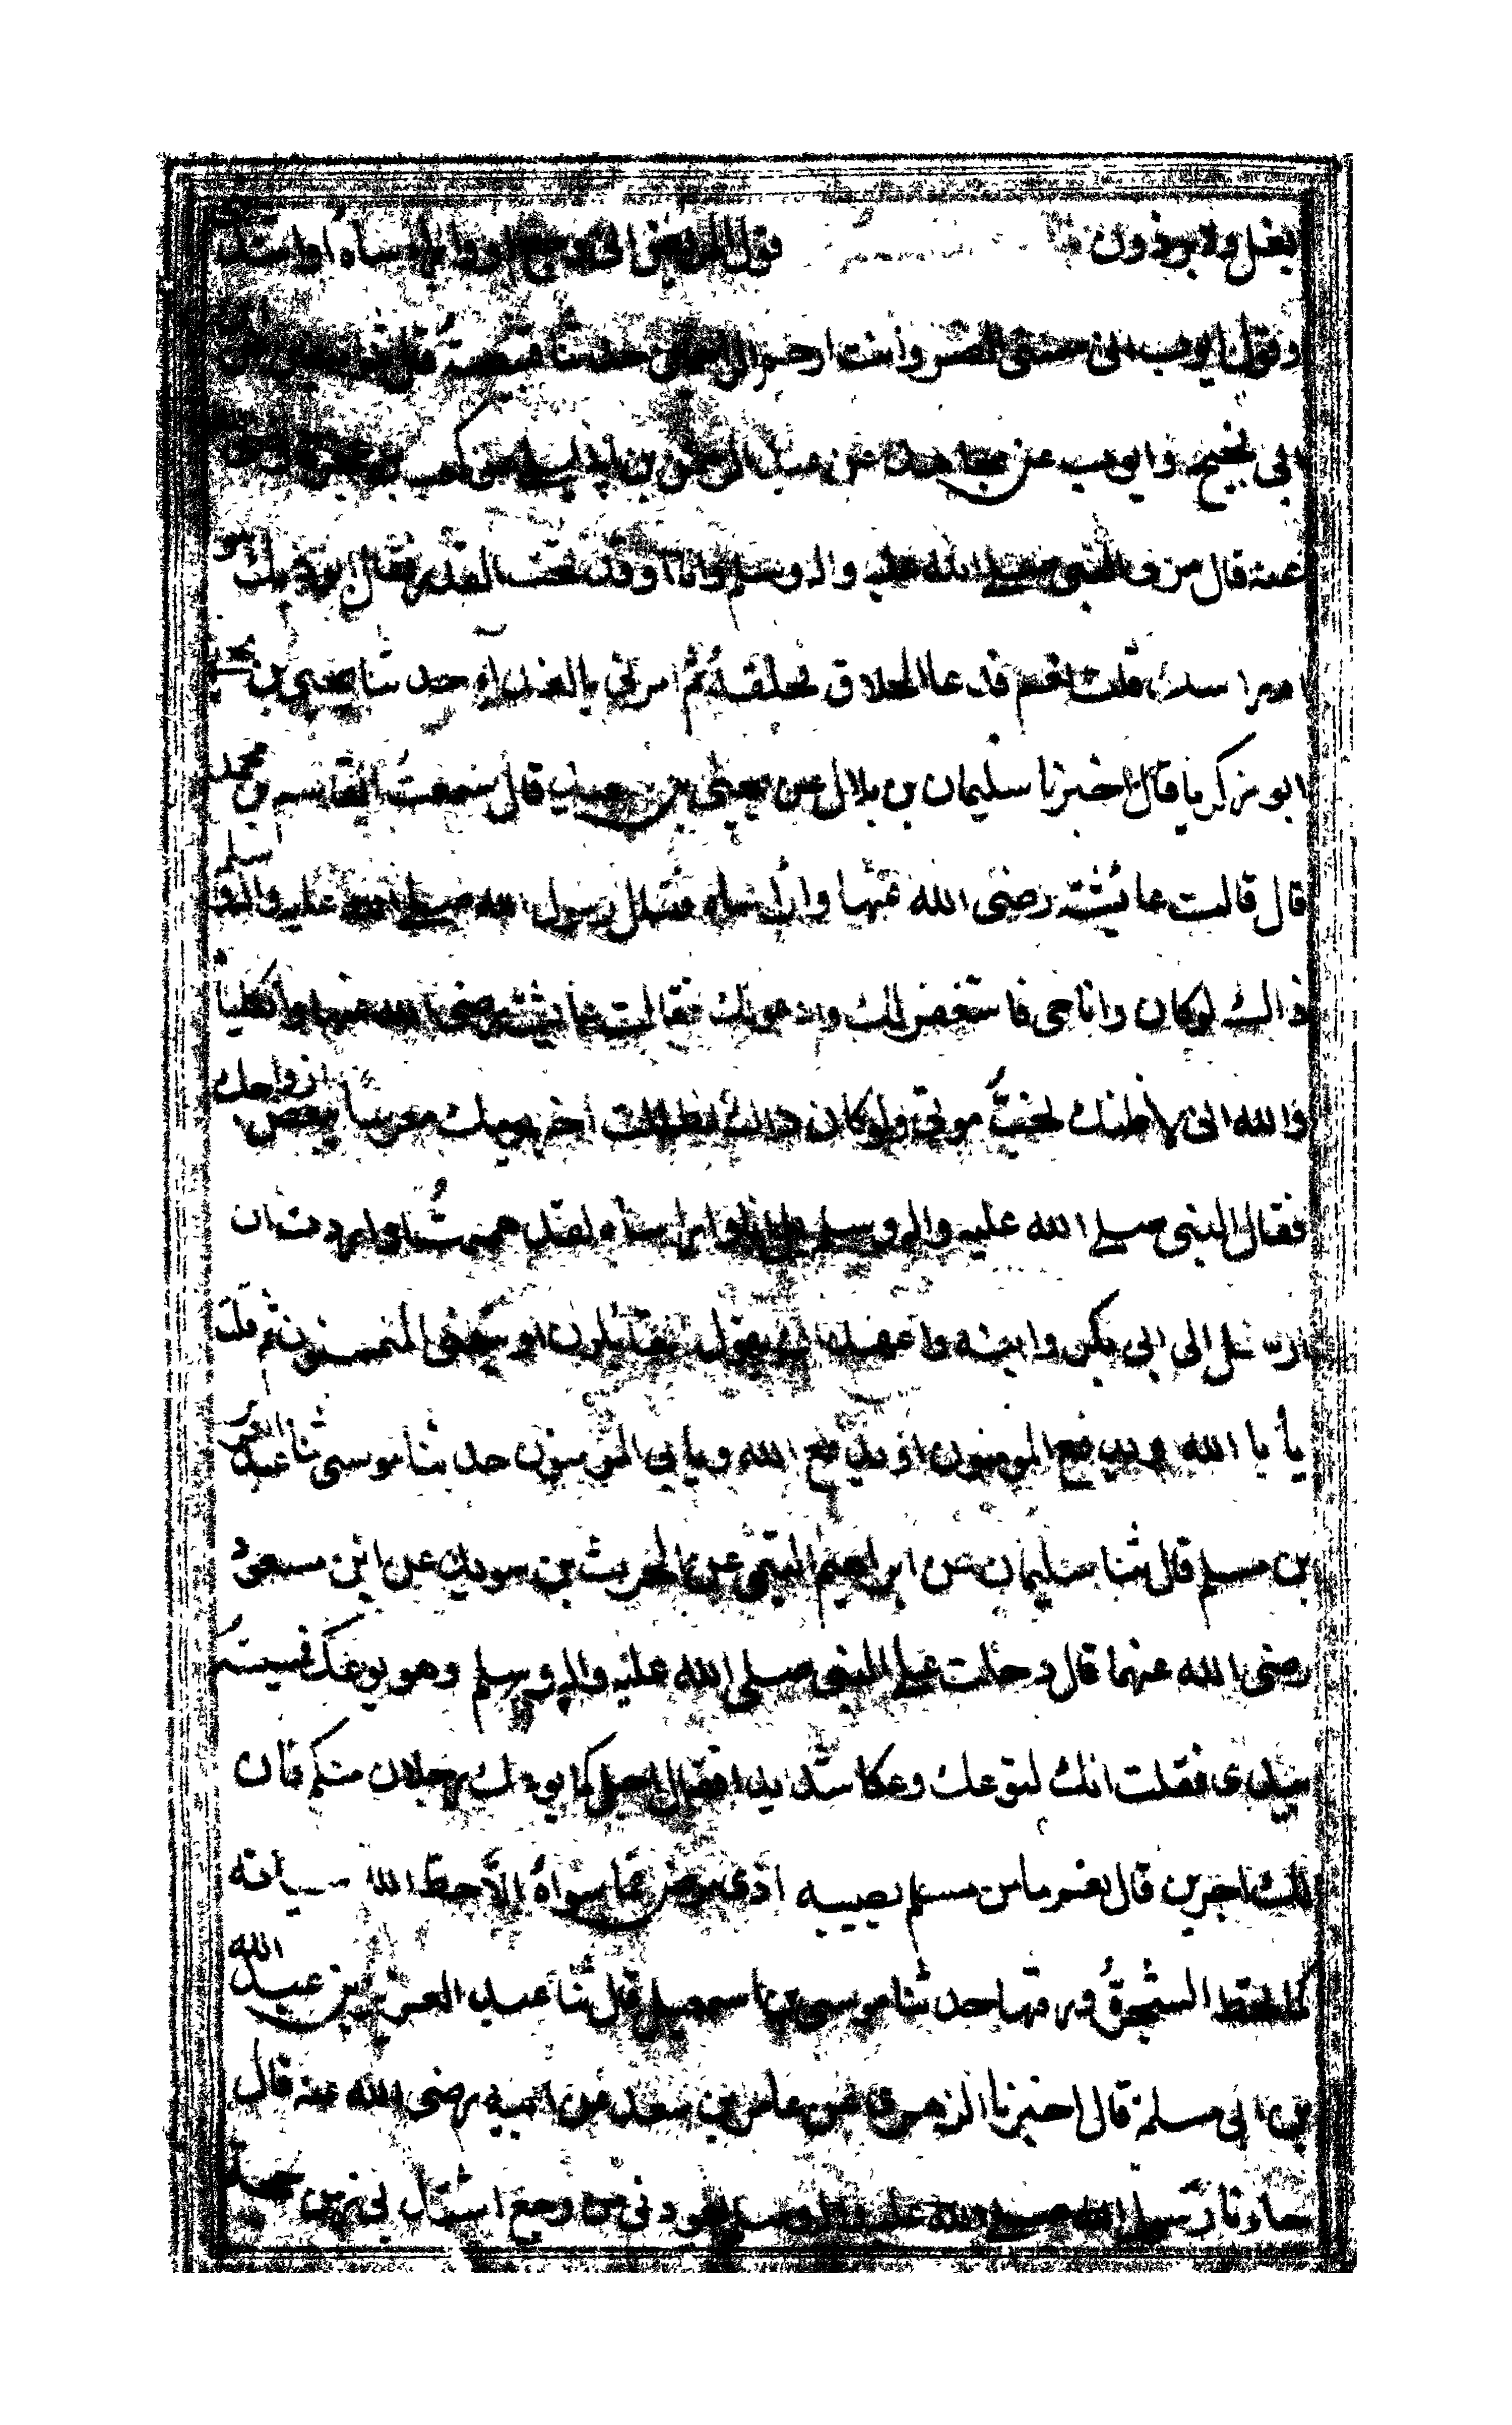 بغل ولا برذون قول المريض اني وجع او وا راساه أو اشتد
وقول ايوب اني مسني الضر وانت ارحم الراحمين حدثنا قبيصة قال ثنا سفين عن ابن
ابي نجيح وايوب عن مجاهد عن عبد الرحمن بن ابي ليلى عن كعب بن عجرة رضي الله
عنه قال مر في النبي صلى الله عليه واله وسلم وانا اوقد تحت القدر فقال ايوذيك هو
ام راسك قلت نعم فدعا الحلاق فحلقه ثم امرني بالفداء حدثنا يحيى بن يحيى
ابو زكريا قال اخبرنا سليمان بن بلال عن يحيى بن سعيد قال سمعت القاسم بن محمد
قال قالت عائشة رضي الله عنها وا راساه فقال رسول الله صلى الله عليه واله وسلم
ذاك لو كان وانا حي فاستغفر لك وادعو لك فقالت عائشة رضي الله عنها واثكلياه
والله اني لاظنك تحب موتي ولو كان ذاك لظللت اخر يومك معرسا ببعض ازواجك
فقال النبي صلى الله عليه واله وسلم بل انا وا راساه لقد هممت او اردت ان
ارسل الى ابي بكر وابنه واعهد ان يقول القائلون او يتمنى المتمنون ثم قلت
يأبا الله ويدفع المومنون او يدفع الله ويابى المومنون حدثنا موسى ثنا عبد العزيز
بن مسلم قال ثنا سليمان عن ابراهيم التيمي عن الحرث بن سويد عن ابن مسعود
رضي الله عنهما قال دخلت على النبي صلى الله عليه واله وسلم وهو يوعك فمسسته
بيدي فقلت انك لتوعك وعكا شديدا قال اجل كما يوعك رجلان منكم قال
لك اجرين قال نعم ما من مسلم يصيبه اذى مرض فما سواه الا حط الله سيئاته
كما تحط الشجرة ورقها حدثنا موسى بن اسمعيل قال ثنا عبد العزيز بن عبد الله
بن ابي سلمة قال اخبرنا الزهري عن عامر بن سعد عن ابيه رضي الله عنه قال
جاءنا رسول الله صلى الله عليه واله وسلم يعودني من وجع اشتد لي زمن حجة